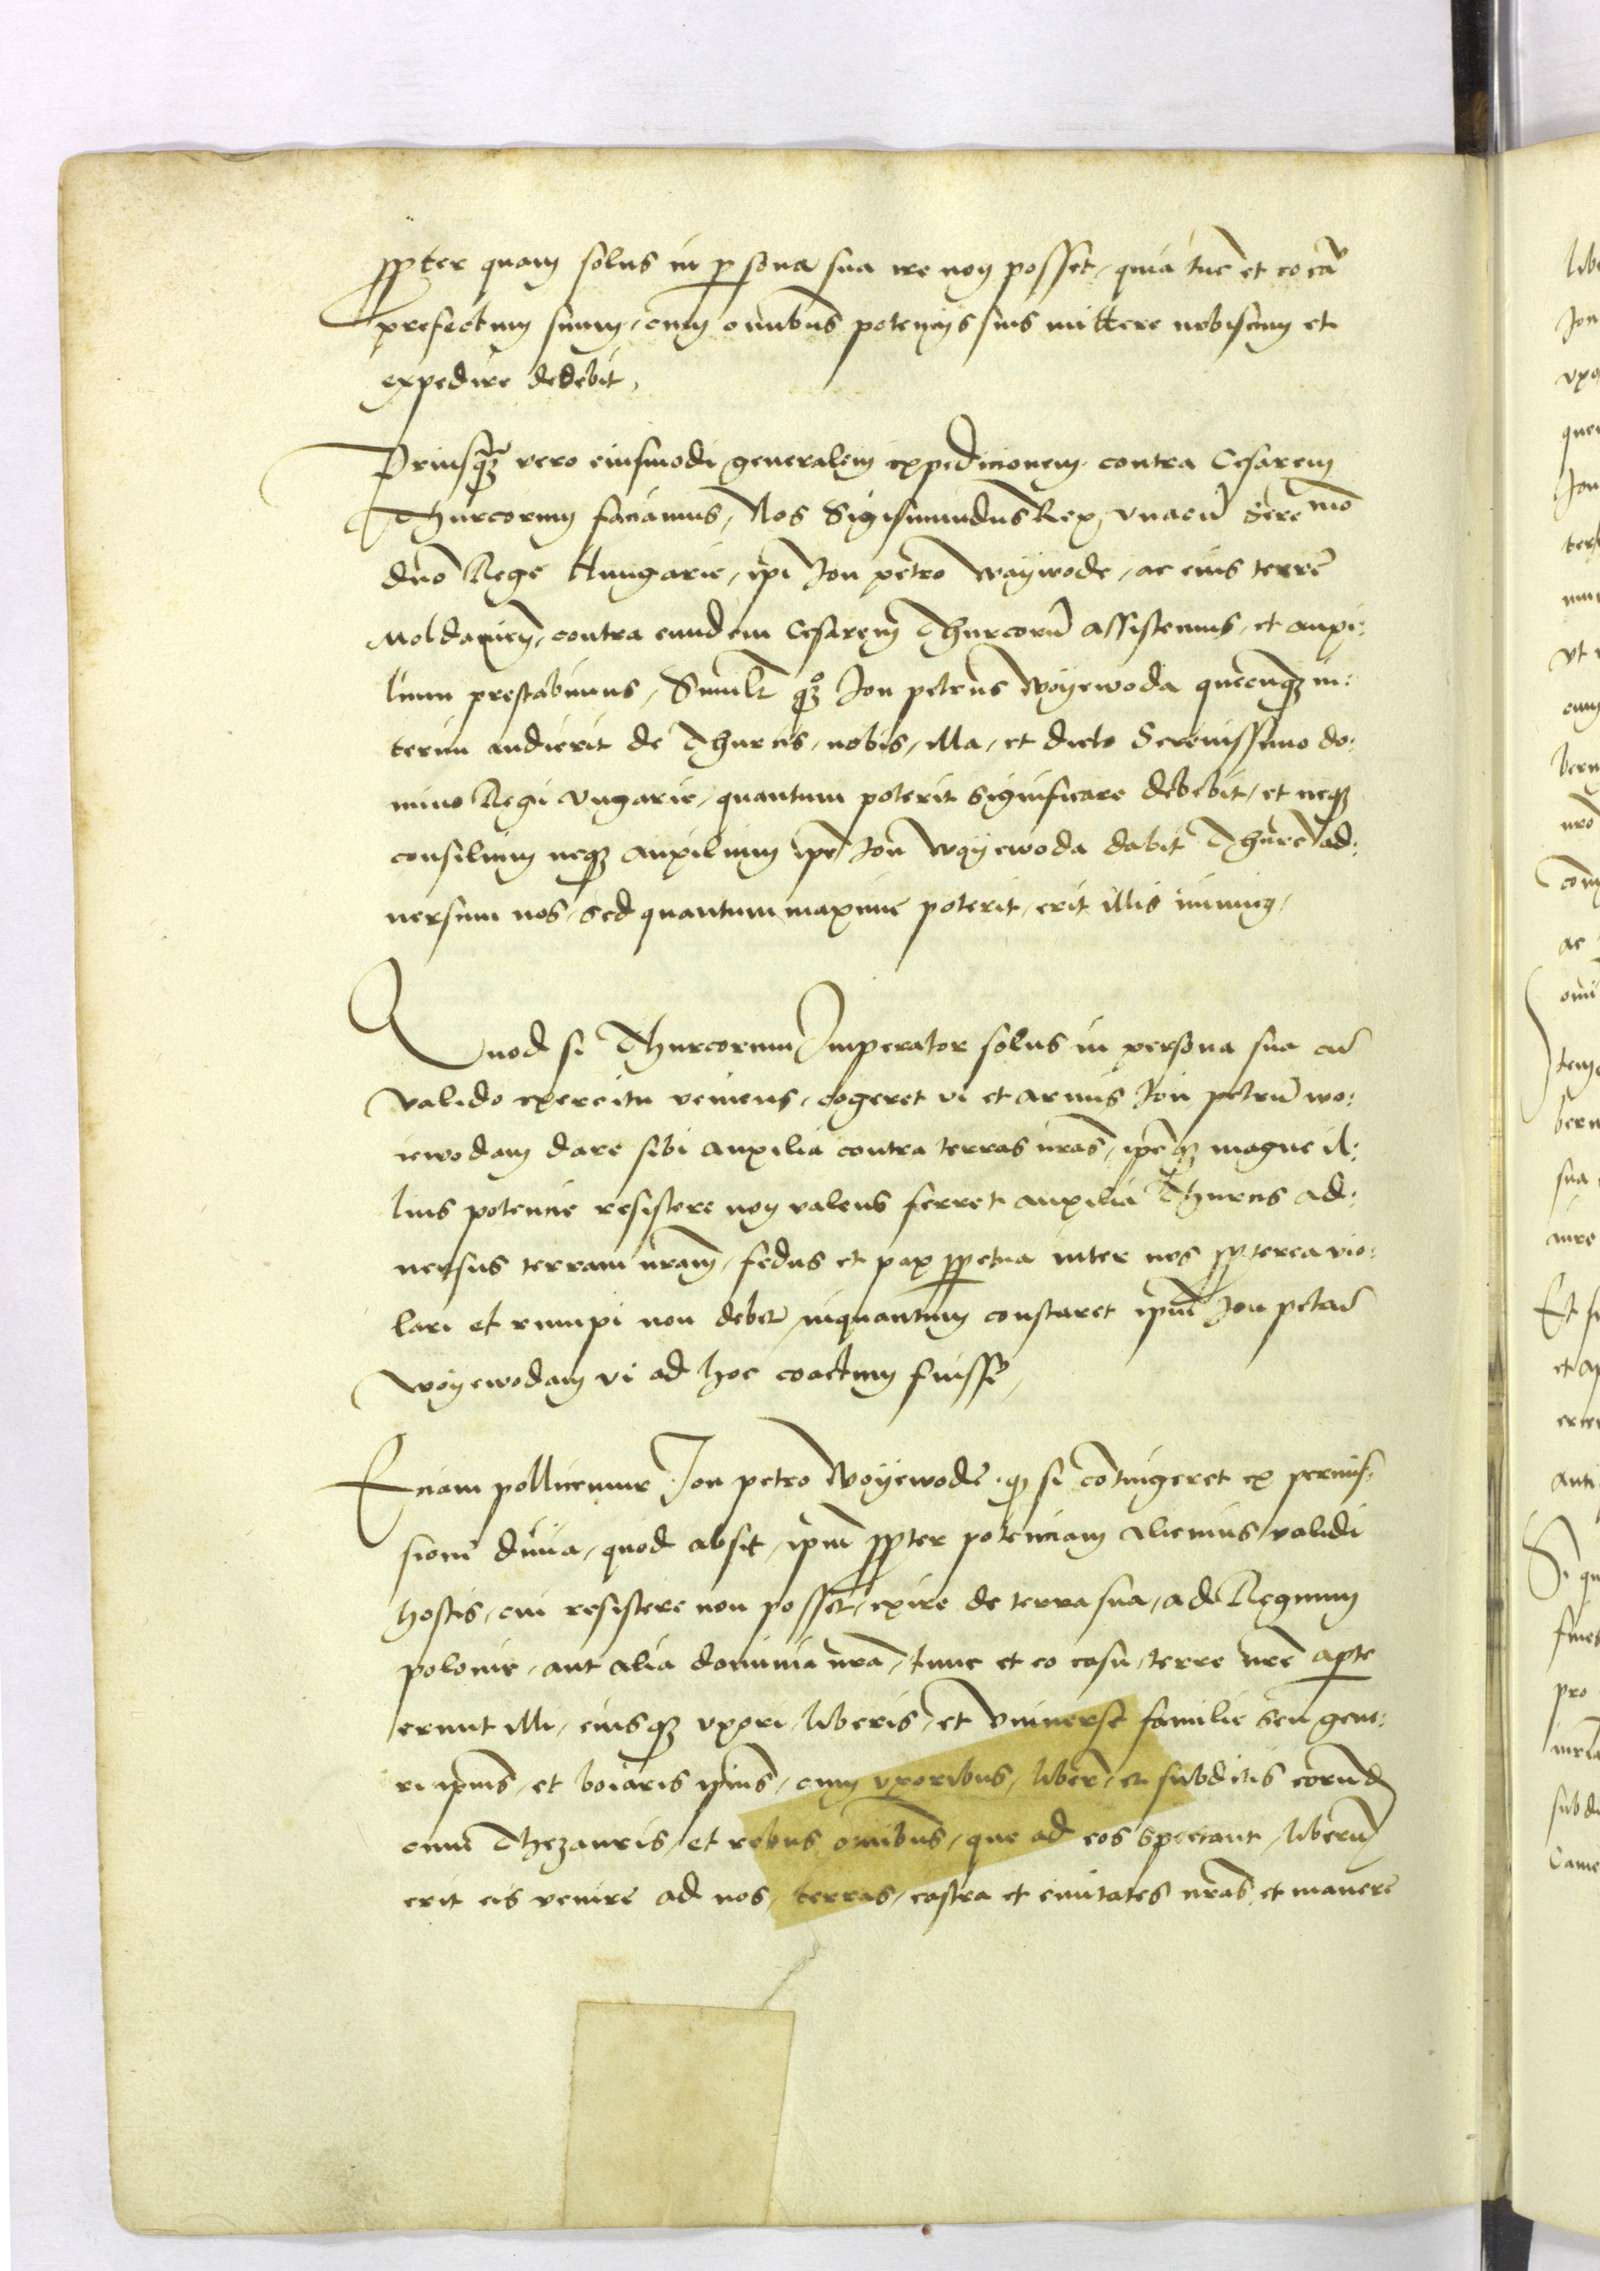 ppter quam solus in persona sua ire non posset, quia tūc et eo casu
prefectum suum, cum omnibus potencijs suis mittere nobiscum et
expedire debebit,
Priusqȝ vero eiusmodi generalem expedicionem contra Cesarem
Thurcorum faciamus, Nos Sigismundus Rex, vnacū Sereᵐᵒ
dno Rege Hungarie, ipi Jon petro Waywode, ac eius terre
Moldauien, contra eundem Cesarem Thurcorū assistemus, et auxi:
lium prestabimus, Similr qȝ Jon petrus Woyewoda quecunqȝ in:
terim audierit de Thurcis, nobis, illa, et dicto Serenissimo do:
mino Regi Vngarie, quantum poterit significare debebit, et neqȝ
consilium neqȝ auxilium ipe Jon Woyewoda dabit Thurc ad:
uersum nos, sed quantum maxime poterit, erit illis inimicꝰ,
Quod si Thurcorum Imperator solus in persona sua cū
valido exercitu veniens, cogeret vi et armis Jon petrū wo:
iewodam dare sibi auxilia contra terras nras, ipeqȝ magne il:
lius potencie resistere non valens ferret auxilia Thurcis ad:
uersus terram nram, fedus et pax ppetua inter nos ppterea vio:
lari et rumpi non debet, inquantum constaret ipm Jon petrū
Woyewodam vi ad hoc coactum fuisse,
Eciam pollicemur Jon petro Woyewode, q si contingeret ex permis:
sione diuina, quod absit, ipm ppter potenciam alicuius validi
hostis, cui resistere non posset, exire de terra sua, ad Regnum
polonie, aut alia dominia nra, tunc et eo casu, terre nre apte
erunt illi, eiusqȝ vxori, liberis, et vniuerse familie seu gene:
ri ipius, et boiaris ipius, cum vxoribus, liberis, et subditis eorund
cum Thezauris, et rebus omnibus, que ad eos spectant, liberū
erit eis venire ad nos, terras, castra et ciuitates nras, et manere